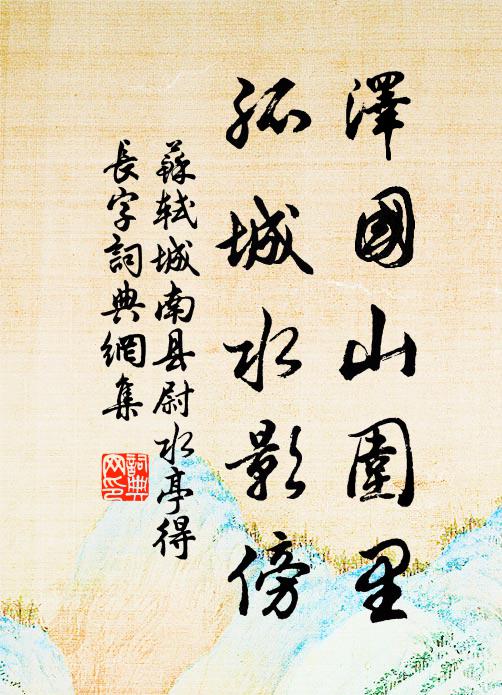 澤國山圍里
孤城水影傍
蘇軾城南县尉水亭得
長字詞典網集
詞典网印